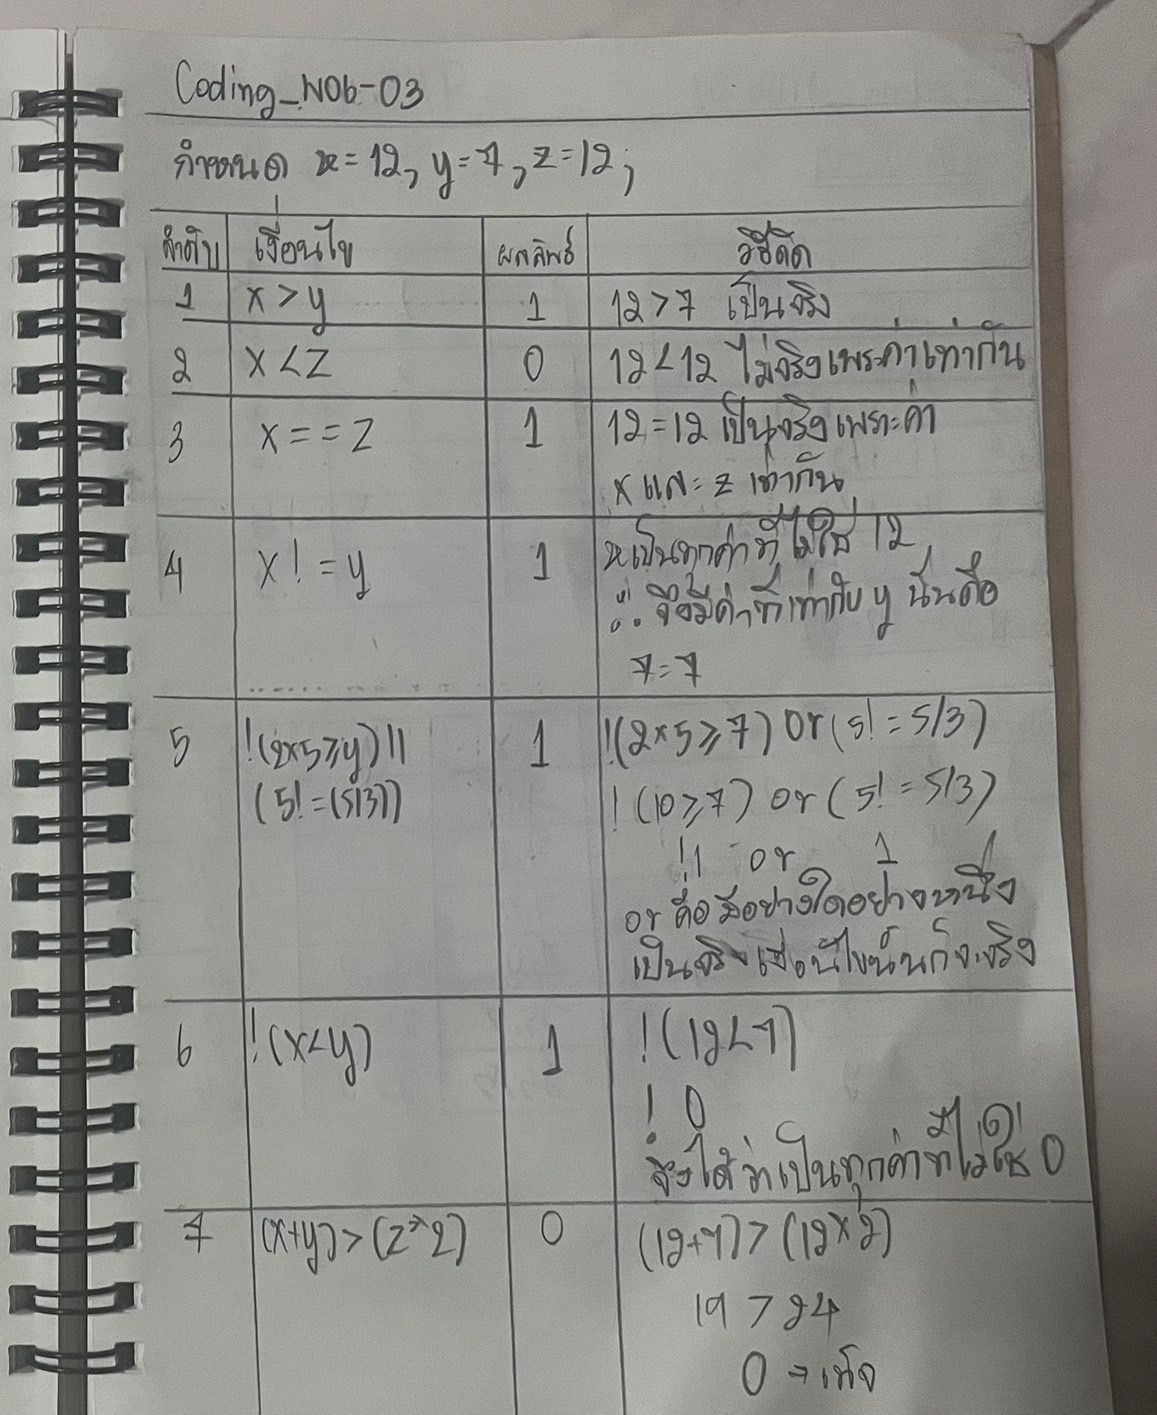 Coding_W06-03
กำหนด x=12, y=7, z=12;
ลำดับ เงื่อนไข ผลลัพธ์ วิธีคิด
1 x>y 1 12>7 เป็นจริง
2 x<z 0 12<12 ไม่จริงเพระค่าเท่ากัน
3 x==z 1 12=12 เป็นจริงเพราะค่า
x และ z เท่ากัน
4 x!=y 1 xเป็นทุกค่าที่ไม่ใช่ 12
∴ จึงมีค่าที่เท่ากับ y นั่นคือ
7=7
5 !(2×5≥y)|| 1 !(2×5≥7) or (5!=5/3)
(5!=(5/3)) !(10≥7) or (5!=5/3)
!1 or 1
or คือ มีอย่างใดอย่างหนึ่ง
เป็นจริง เงื่อนไขนั้นก็จะจริง
6 !(x<y) 1 !(12<7)
! 0
จึงได้ว่าเป็นทุกค่าที่ไม่ใช่ 0
7 (x+y)>(z*2) 0 (12+7)>(12×2)
19 > 24
0 → เท็จ